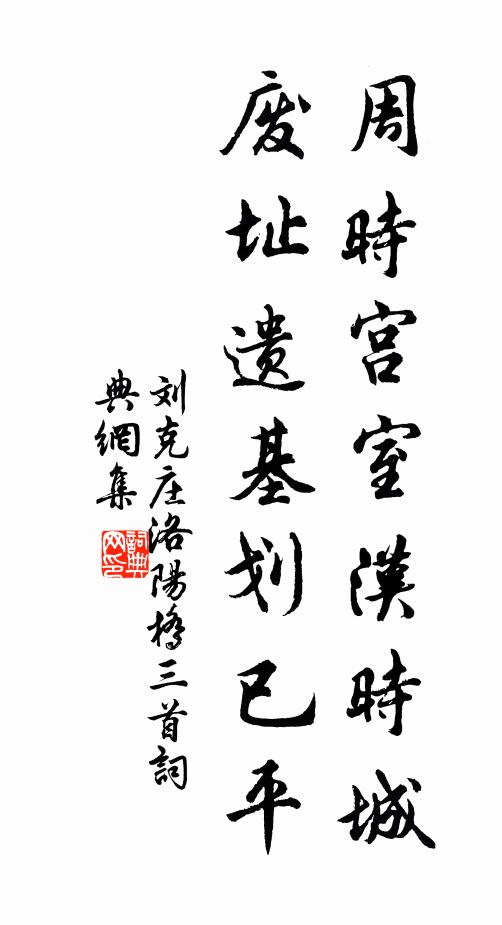 周時宫室漢時城
废址遗基划已平
刘克庄洛陽橋三首詞
典網集
詞典
网印